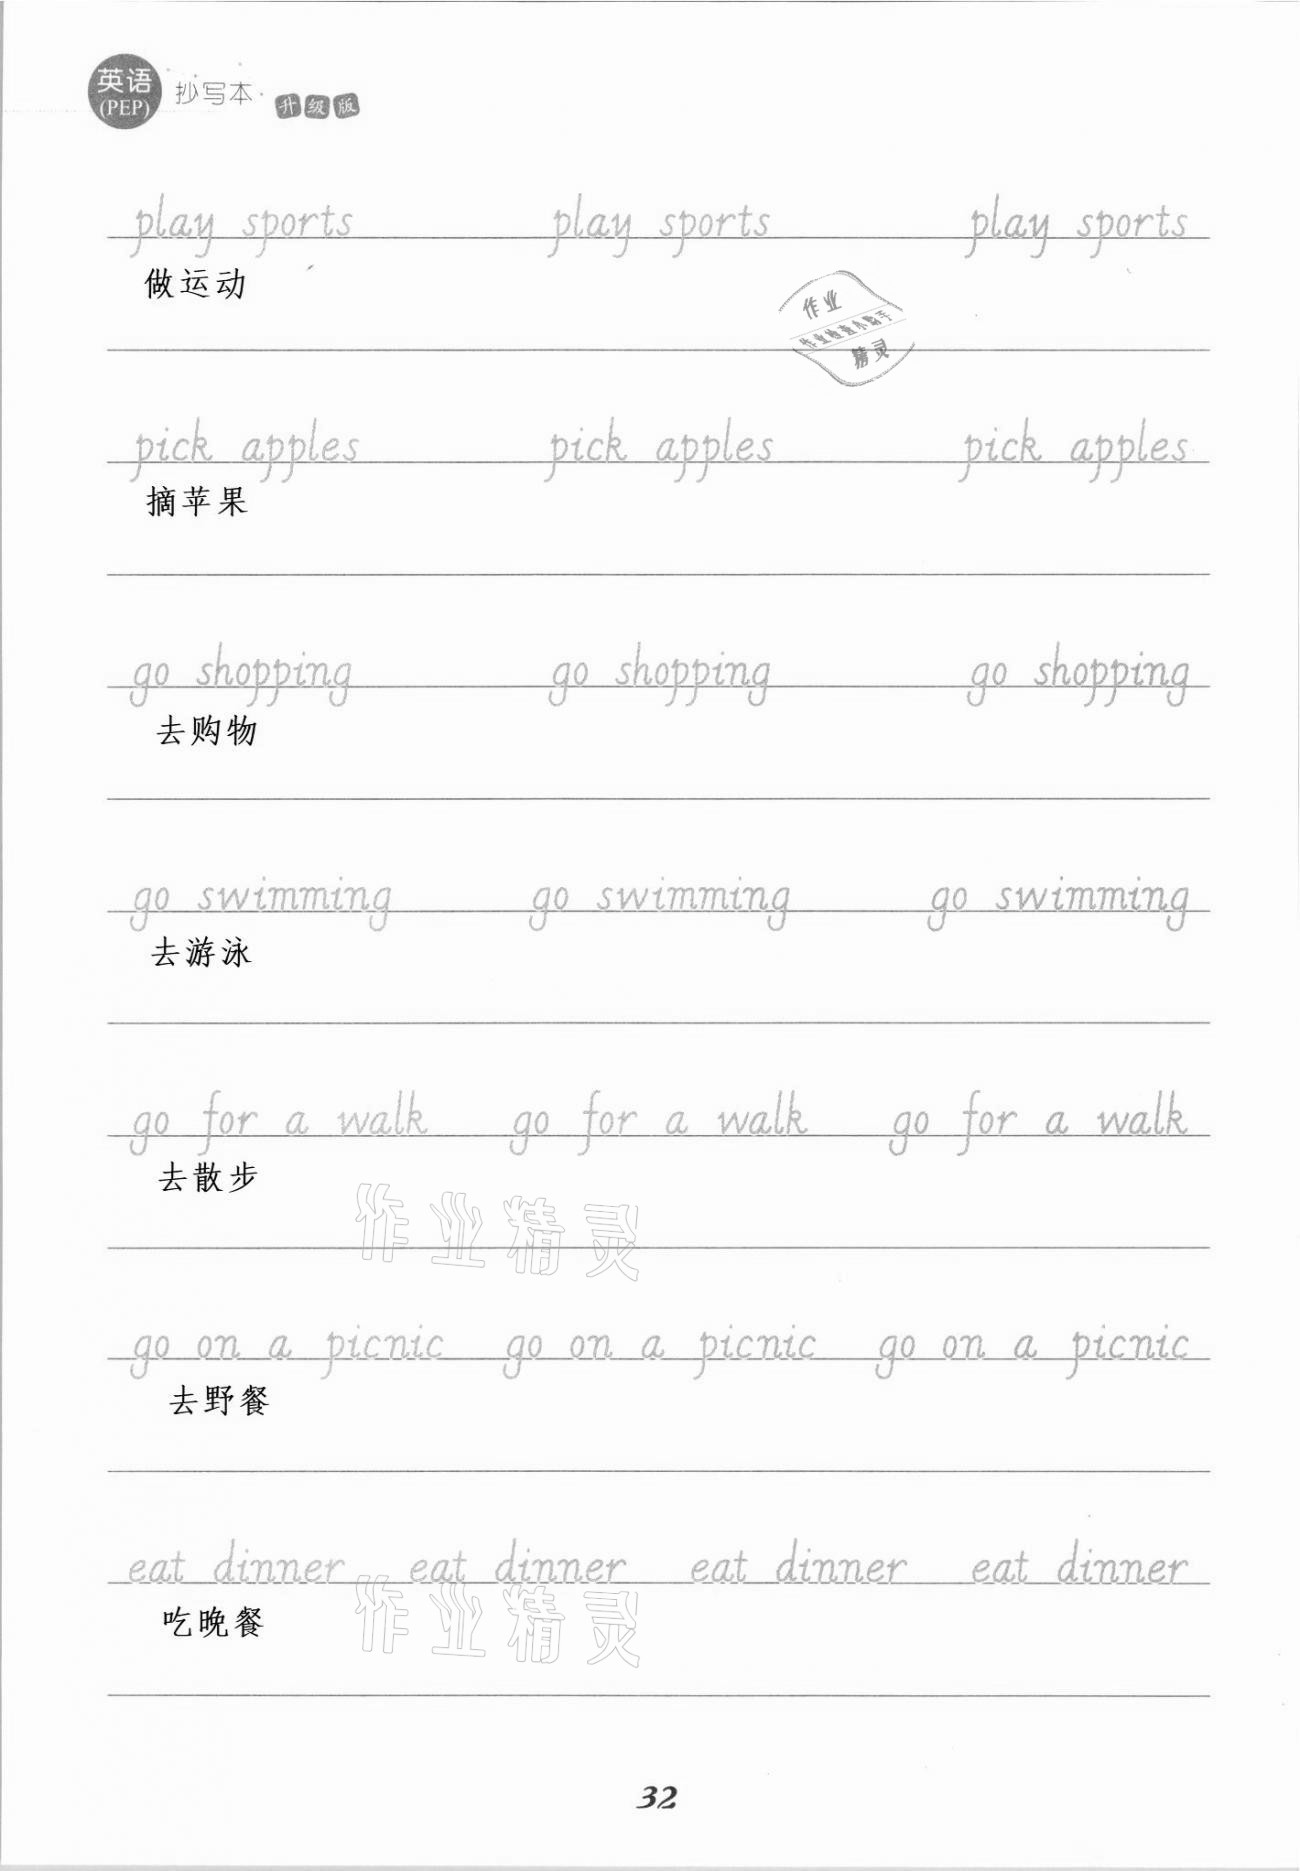 英语
(PEP)
抄写本
升级版
play sports play sports play sports
做运动
作业
作业检查小助手
精灵
pick apples pick apples pick apples
摘苹果
go shopping go shopping go shopping
去购物
go swimming go swimming go swimming
去游泳
go for a walk go for a walk go for a walk
去散步
作业精灵
go on a picnic go on a picnic go on a picnic
去野餐
eat dinner eat dinner eat dinner eat dinner
吃晚餐
作业精灵
32